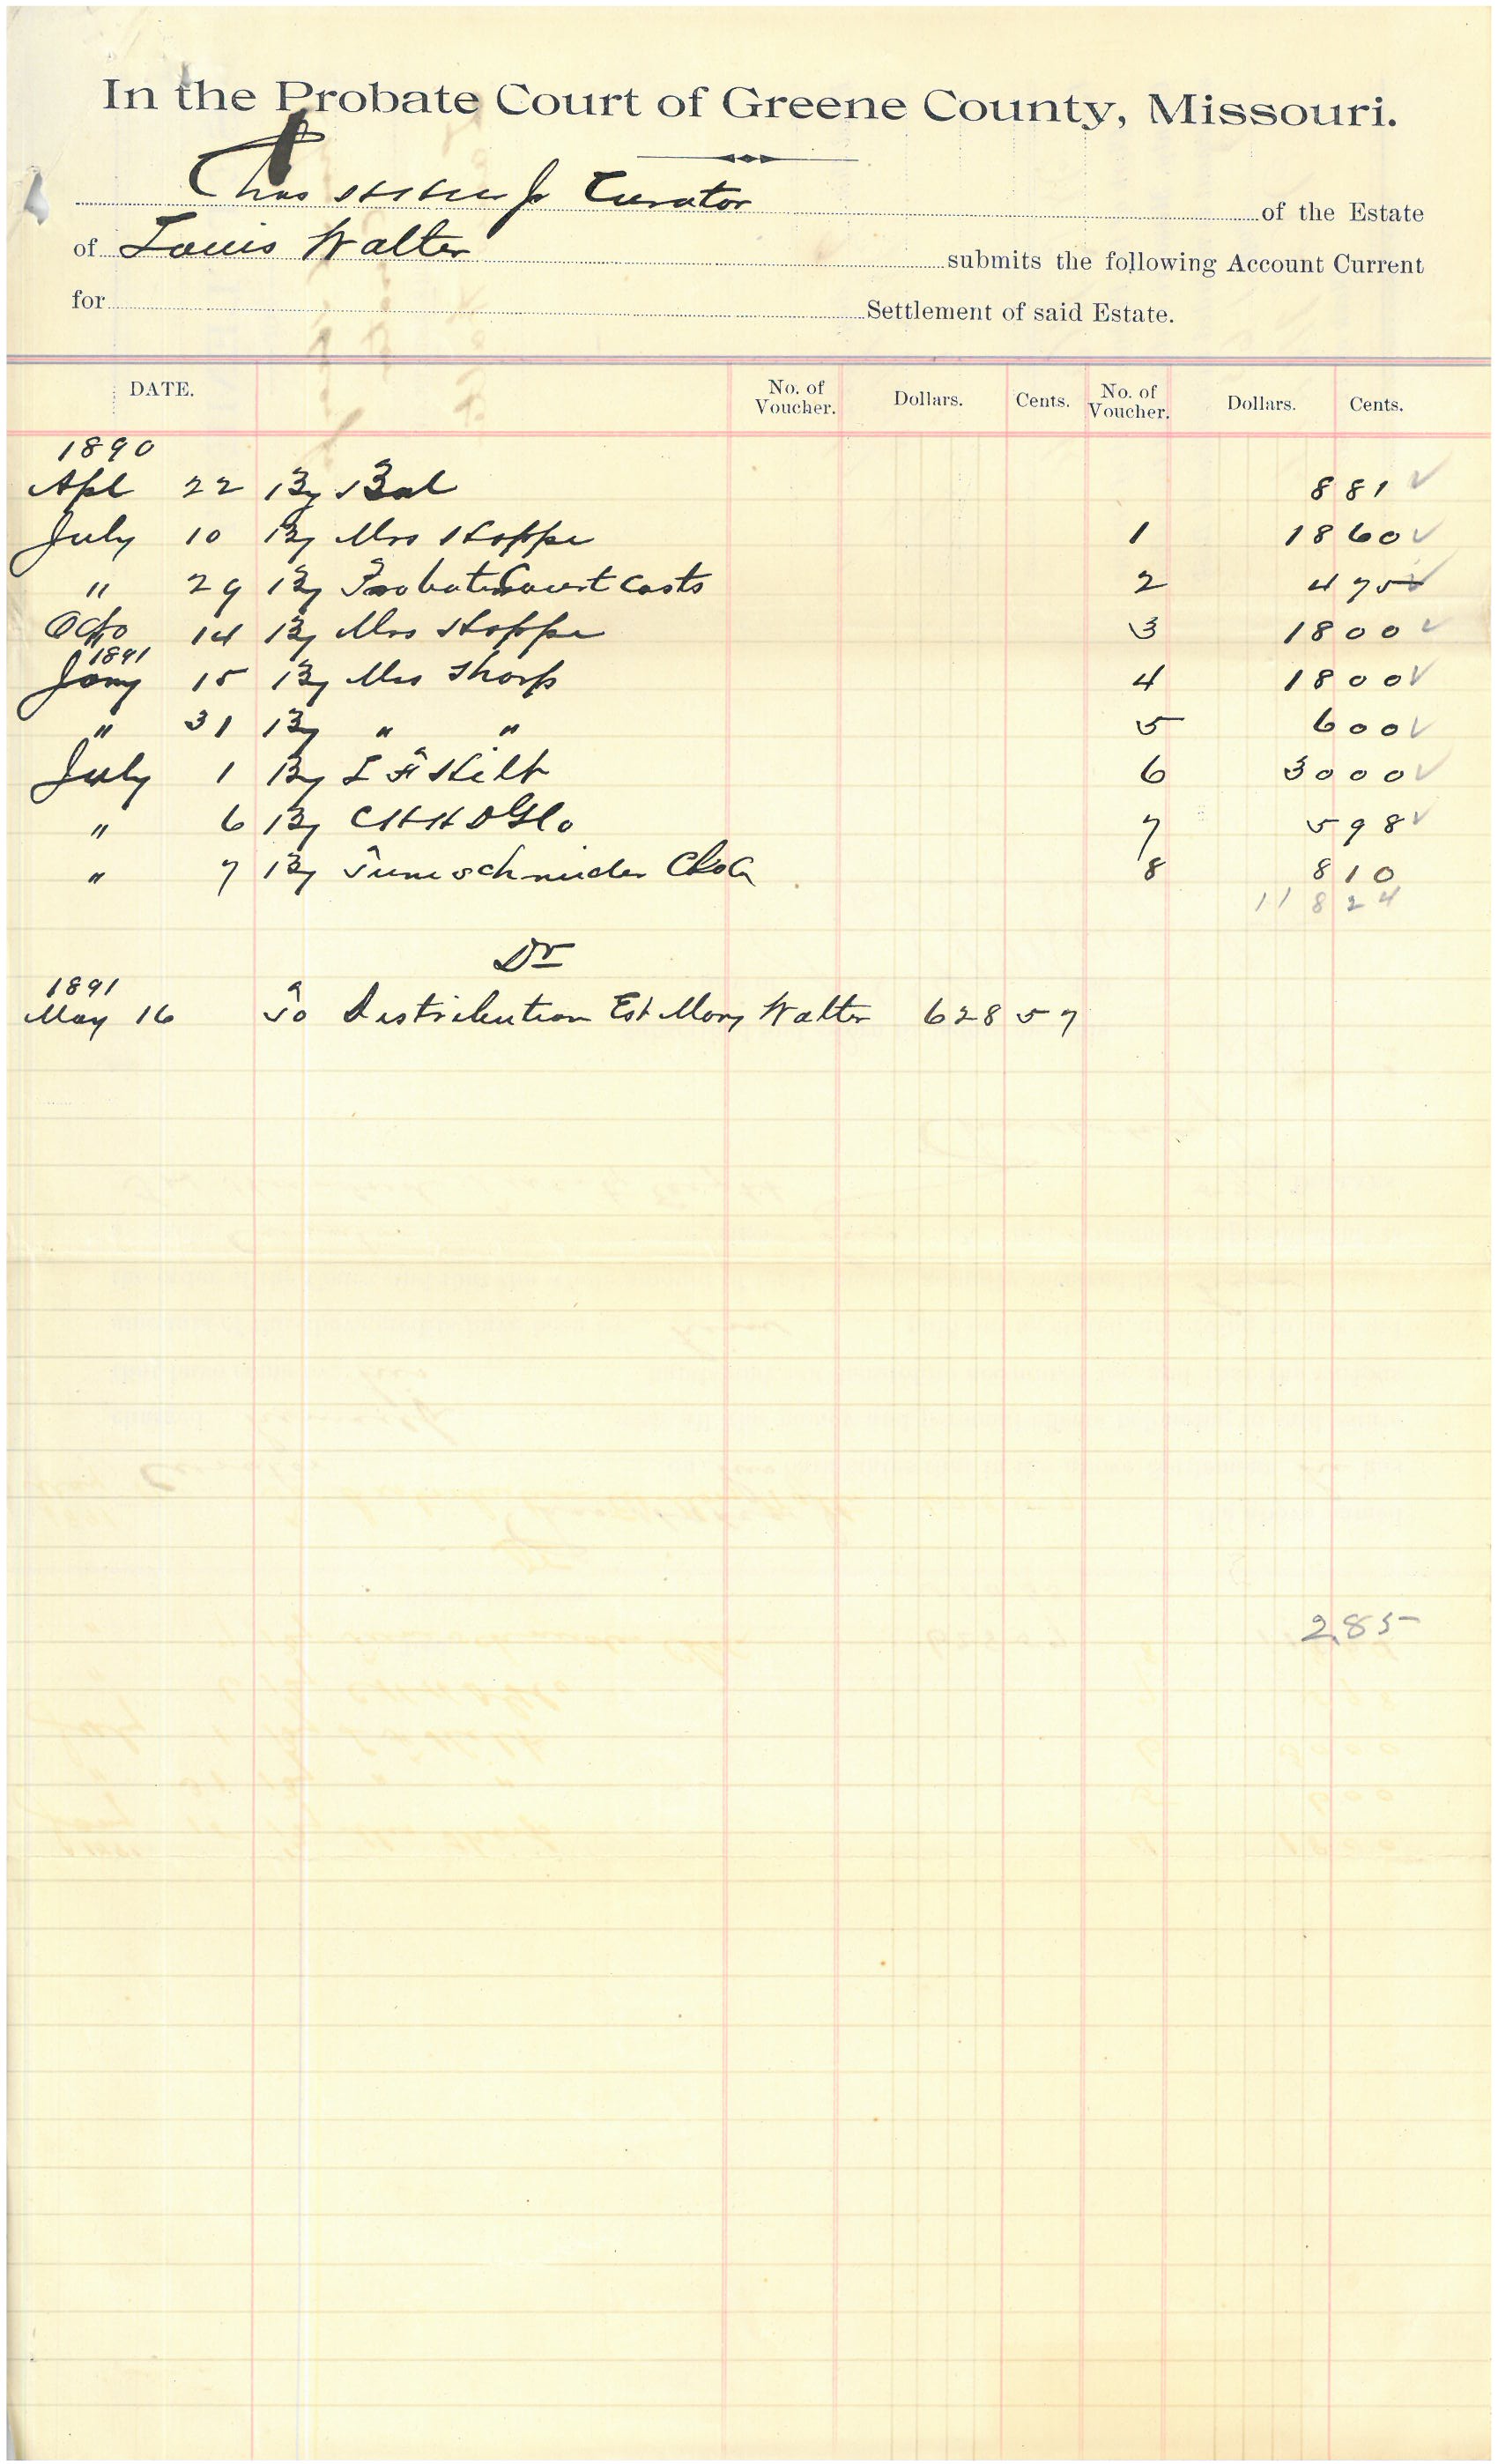 In the Probate Court of Greene County, Missouri.
Chas Jr Curator of the Estate
of Louis Walter submits the following Account Current
for Settlement of said Estate.
DATE. No. of Voucher. Dollars. Cents. No. of Voucher. Dollars. Cents.
1890
Apl 22 By Bal 8 81
July 10 By Mrs Hoppe 1 18 60
" 29 By Probate Court Costs 2 4 75
Octo 14 By Mrs Hoppe 3 18 00
1891
Jany 15 By Mrs Sharp 4 18 00
" 31 By " " 5 6 00
July 1 By 6 30 00
" 6 By 7 5 98
" 7 By 8 8 10
118 24
Dr
1891
May 16 To Distribution Est Mary Walter 628 57
2.85